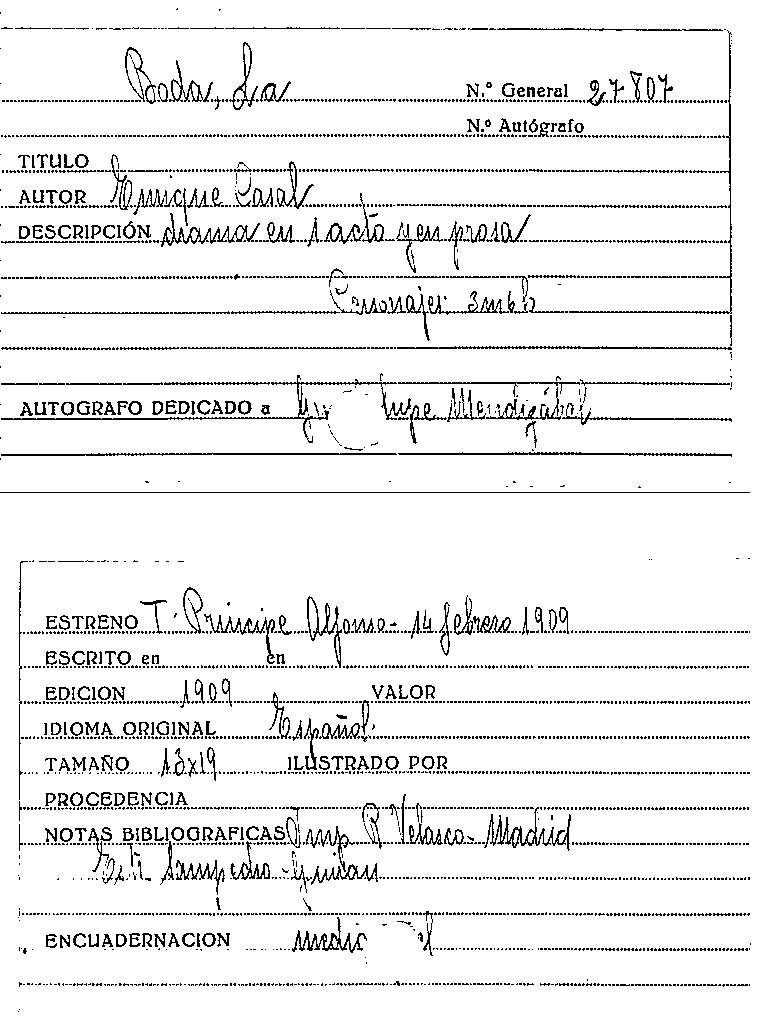 Boda, La
N.º General 27807
N.º Autógrafo
TITULO
AUTOR Enrique Casal
DESCRIPCIÓN drama en 1 acto y en prosa
Personajes: 3m6h
AUTOGRAFO DEDICADO a Mendizábal
ESTRENO T. Principe Alfonso - 14 febrero 1909
ESCRITO en en
EDICION 1909 VALOR
IDIOMA ORIGINAL Español.
TAMAÑO 13x19 ILUSTRADO POR
PROCEDENCIA
NOTAS BIBLIOGRAFICAS Imp R Velasco - Madrid
ENCUADERNACION